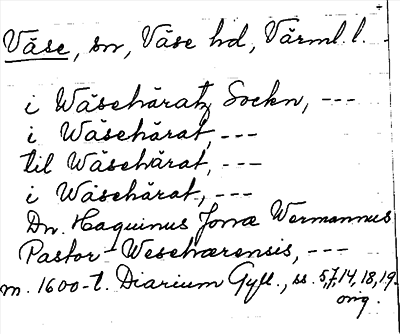 Väse, sn, Väse hd, Värml. l.
i Wäsehäratz Sockn, ---
i Wäsehärat, ---
til Wäsehärat, ---
i Wäsehärat, ---
Dn. Haquinus Jonæ Wermannus
Pastor Wesehærensis, ---
m. 1600-t. Diarium Gyll., ss. 5,7,14,18,19.
orig.